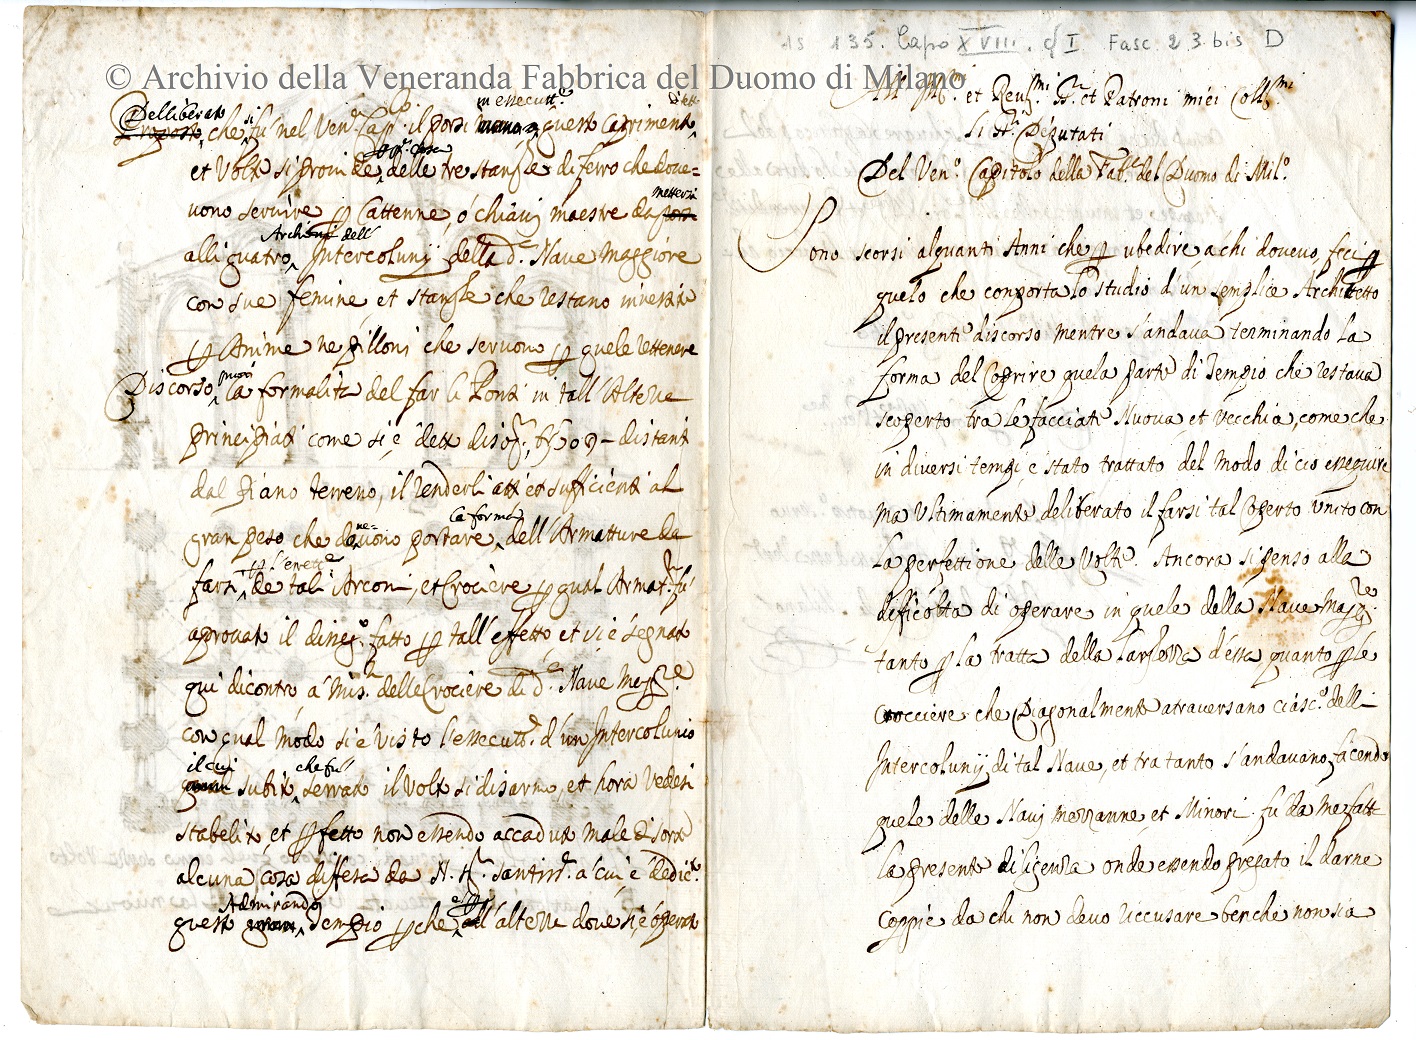 18 135. Capo XVIII. § I Fasc. 23 bis D
© Archivio della Veneranda Fabbrica del Duomo di Milano
Delliberato in essecutt.e d'ette
Proposto, che si fù nel Ven. Cap. il porsi mano a questo Coprimento
et Volte si providde delle tre stangle di ferro che dove=
metterse
vono servire p Cattenne, ó chiavij maestre da porsi
Archi dell
alli quatro Intercolunij della d. Nave maggiore
con sue femine, et stangle che restano inverse
p Anime ne pilloni che servono p quele rettenere
Discorso, la formalità del far li Ponti in tall'Altezze
principiati come si é detto di sop. distanti
dal piano terreno, il renderli atti et sufficienti al
ne= la forma
gran peso che devono portare, dell'Armatture da
p l'erett.e
farsi, de tali Arconi, et Crociere p qual Armat. fù
aprovato il diseg.o fatto p tall'effetto, et si é segnato
qui dicontro, á Mis. delle Crociere di d. Nave Magg.re
con qual modo si é visto l'essecutt. d'un Intercolunio
il cui che fu
subito, serrato il Volto si disarmo, et hora vedesi
stabelito, et pfetto non essendo accaduto male di sorte
alcuna cosa diffesa da N. Sr. Santiss. a cui é dedic.o
Admirando
questo gran Tempio p che all'altezze dove si é operato
All Ill.mi et Rev.mi Sr. et Patroni miei Coll.mi
Li Sri Députati
Del Ven.o Capitolo della Fab. del Duomo di Mil.o
Sono scorsi alquanti Anni che p ubedire á chi dovevo, feci p
quelo che comporta lo studio d'un semplice Architetto
il presente discorso mentre s'andava terminando la
forma del Coprire quela parte di Tempio che restava
scoperto tra le facciate Nuova et Vecchia, come che
in diversi tempi é stato trattato del modo di cio esseguire
ma Ultimamente deliberato il farsi tal Coperto unito con
la perfettione delle Volte. Ancora si penso alla
dificoltà di operare in quele della Nave Magg.re
tanto p la tratta della larghezza d'essa quanto p le
crocciere che Diagonalmente atraversano ciasc.o delli
Intercolunij di tal Nave, et tra tanto s'andavano facendo
quele delle Navi mezzanne, et Minori. fu da me fatta
la presente diligenza onde essendo pregato il darne
coppie da chi non devo riccusare benche non sia